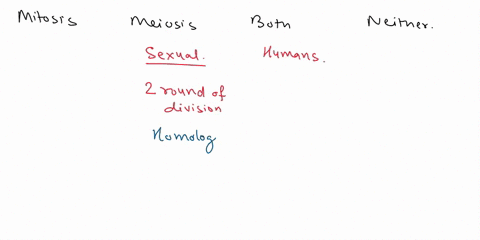 Mitosis Meiosis Both Neither.
Sexual. Humans.
2 round of
division
Homolog